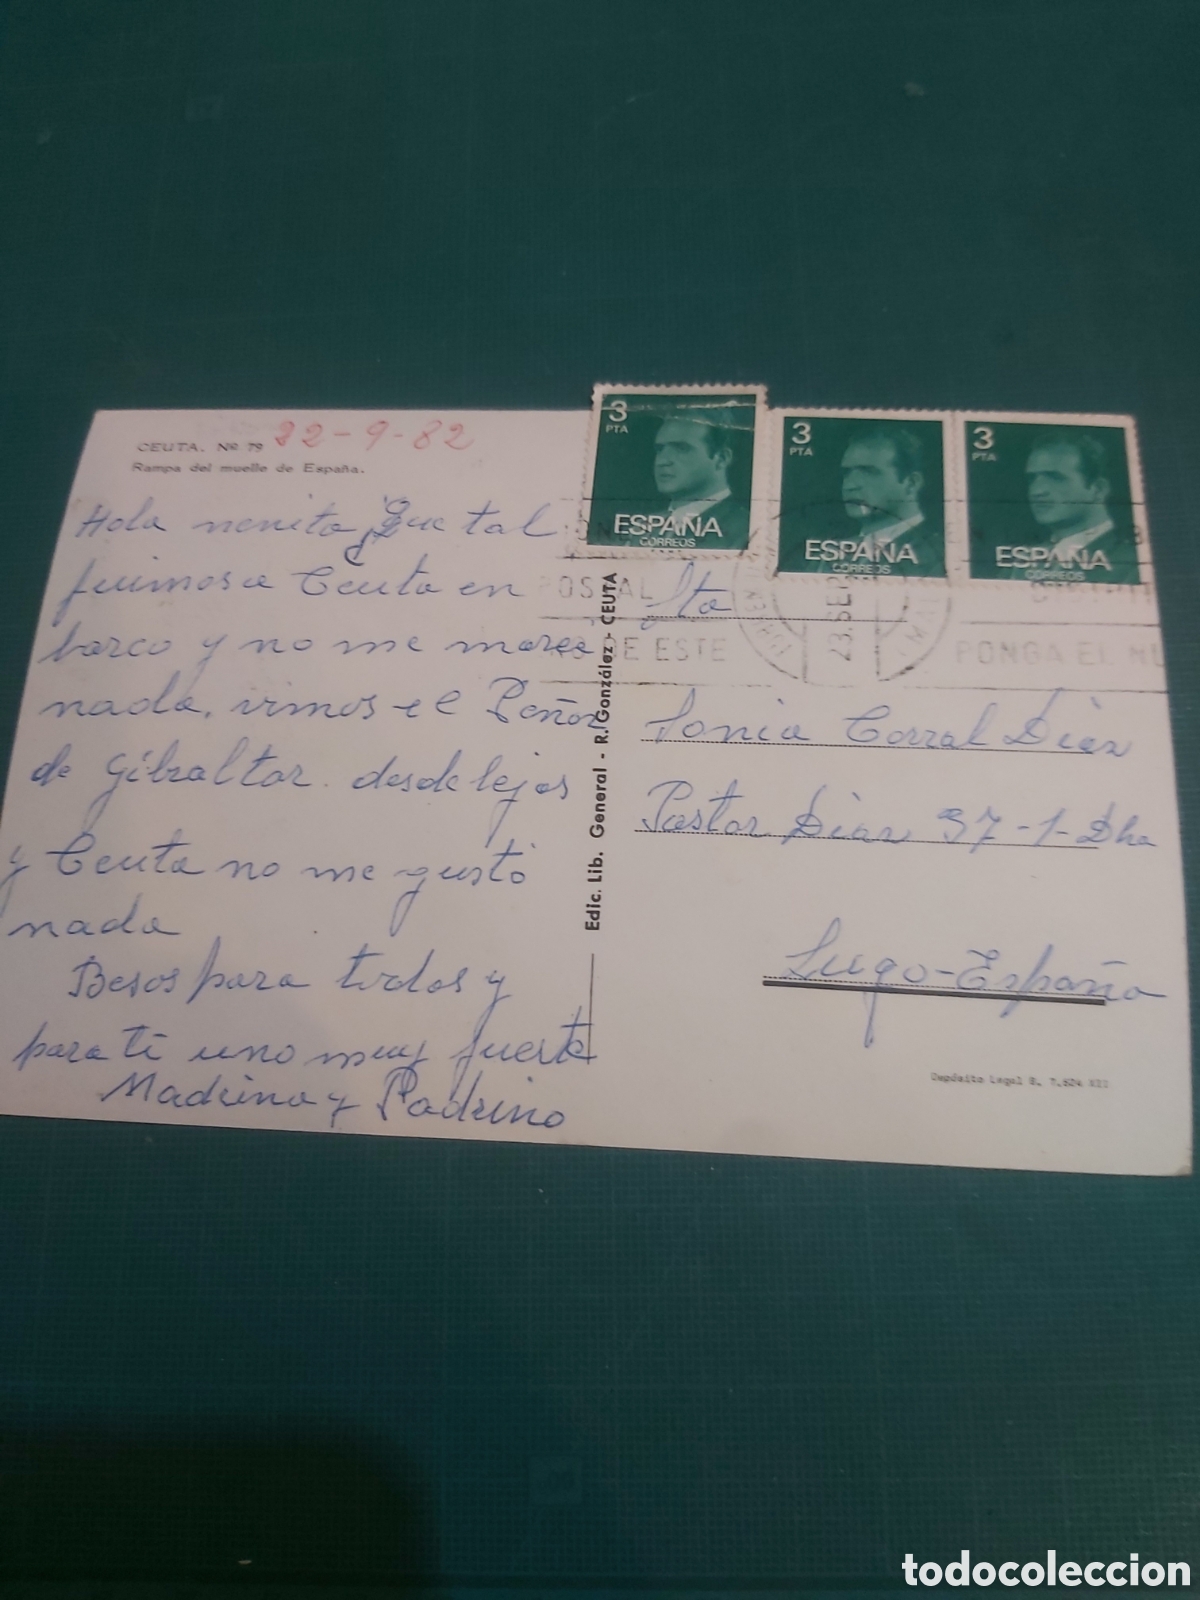 CEUTA. Nº 79
22-9-82
Rampa del muelle de España.
Hola nenita, Que tal
fuimos a Ceuta en
barco y no me maree
nada, vimos el Peñon
de Gibraltar desde lejos
y Ceuta no me gustó
nada
Besos para todos y
para ti uno muy fuerte
Madrina y Padrino
Edic. Lib. General - R. González - CEUTA
3
PTA
ESPAÑA
CORREOS
3
PTA
ESPAÑA
CORREOS
3
PTA
ESPAÑA
CORREOS
POSTAL
DE ESTE
23 SEP
PONGA EL
Sta
Sonia Corral Diaz
Pastor Diaz 37-1-Dha
Lugo-España
Depósito Legal B. 7.624 XII
todocoleccion